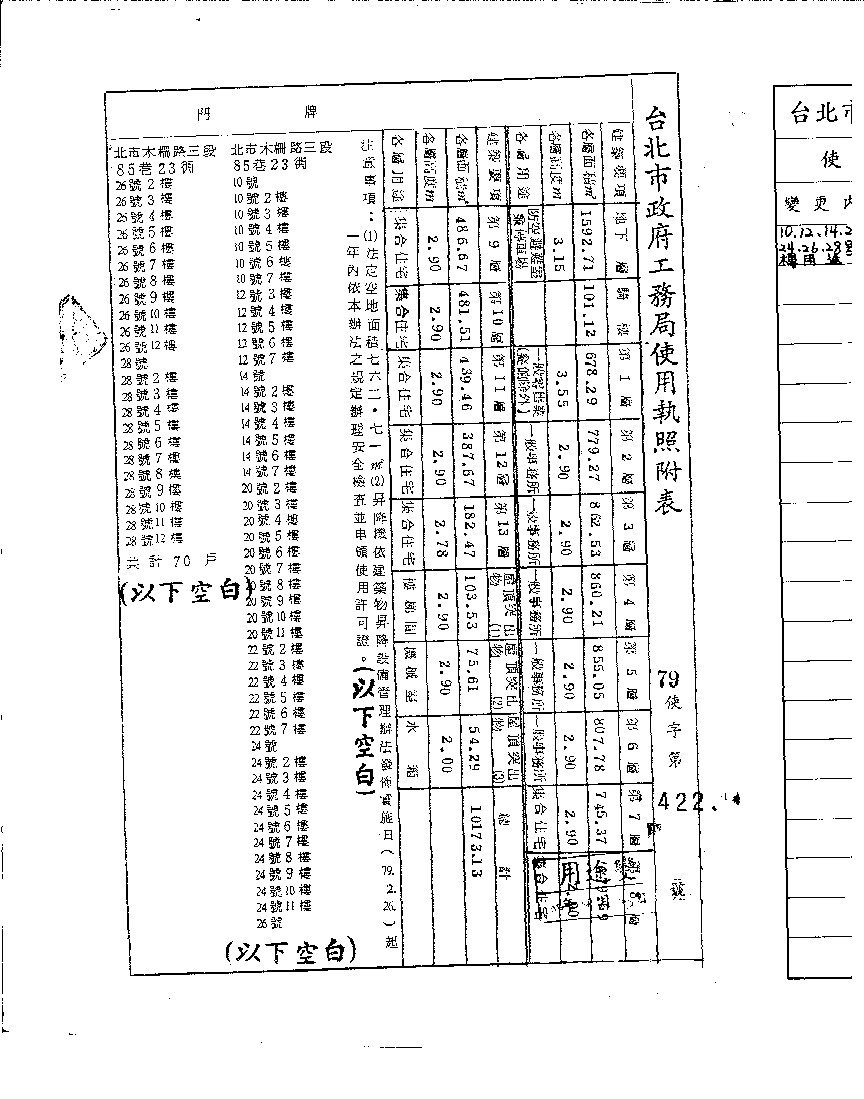 台北市政府工務局使用執照附表
79使字第422.號
建築要項 地下層 騎樓 第1層 第2層 第3層 第4層 第5層 第6層 第7層 第8層
各層面積m² 1592.71 101.12 678.29 779.27 862.53 860.21 855.05 807.78 745.37
各層高度m 3.15 3.55 2.90 2.90 2.90 2.90 2.90 2.90
各層用途 防空避難室 一般零售業 一般事務所 一般事務所 一般事務所 一般事務所 一般事務所 集合住宅 集合住宅
建築要項 第9層 第10層 第11層 第12層 第13層 屋頂突出物(1) 屋頂突出物(2) 屋頂突出物(3) 總計
各層面積m² 486.67 481.51 439.46 387.67 182.47 103.53 75.61 54.29 10173.13
各層高度m 2.90 2.90 2.90 2.90 2.78 2.90 2.90 2.00
各層用途 集合住宅 集合住宅 集合住宅 集合住宅 集合住宅 樓梯間 機械室 水箱
注意事項：(1)法定空地面積七六二・七一㎡(2)昇降機依建築物昇降設備管理辦法發佈實施日(79.2.26.)起
一年內依本辦法之規定辦理安全檢查並申領使用許可證。(以下空白)
門牌
北市木柵路三段
85巷23衖
10號
10號2樓
10號3樓
10號4樓
10號5樓
10號6樓
10號7樓
12號3樓
12號4樓
12號5樓
12號6樓
12號7樓
14號
14號2樓
14號3樓
14號4樓
14號5樓
14號6樓
14號7樓
20號2樓
20號3樓
20號4樓
20號5樓
20號6樓
20號7樓
20號8樓
20號9樓
20號10樓
20號11樓
22號2樓
22號3樓
22號4樓
22號5樓
22號6樓
22號7樓
24號
24號2樓
24號3樓
24號4樓
24號5樓
24號6樓
24號7樓
24號8樓
24號9樓
24號10樓
24號11樓
26號
(以下空白)
北市木柵路三段
85巷23衖
26號2樓
26號3樓
26號4樓
26號5樓
26號6樓
26號7樓
26號8樓
26號9樓
26號10樓
26號11樓
26號12樓
28號
28號2樓
28號3樓
28號4樓
28號5樓
28號6樓
28號7樓
28號8樓
28號9樓
28號10樓
28號11樓
28號12樓
共計70戶
(以下空白)
台北市
使
變更內
10.12.14.2
24.26.28號
樓用途